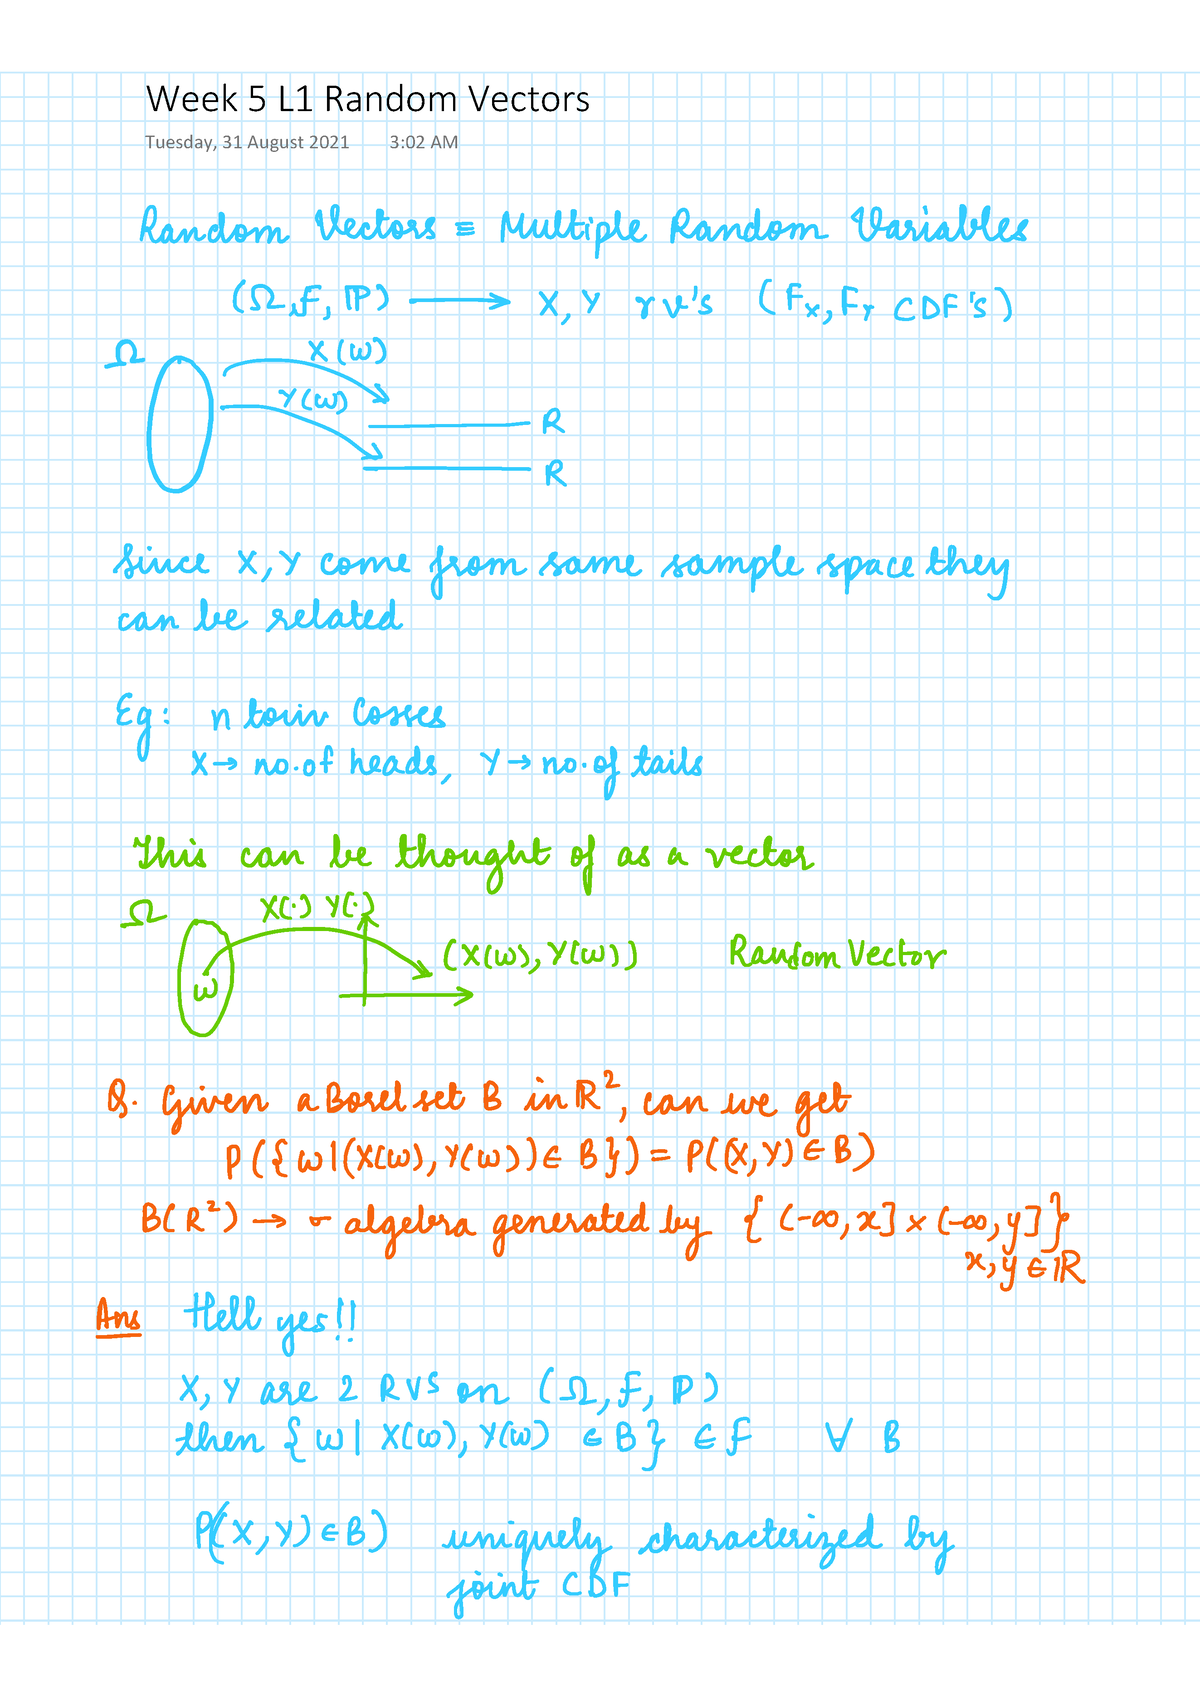 Week 5 L1 Random Vectors
Tuesday, 31 August 2021 3:02 AM
Random Vectors ≡ Multiple Random Variables
(Ω, F, ℙ) ⟶ X, Y rv's (F_X, F_Y CDF's)
Ω
X(ω)
Y(ω)
R
R
Since X, Y come from same sample space they
can be related
Eg: n
X → no. of heads, Y → no. of tails
This can be thought of as a vector
Ω X(·) Y(·)
ω (X(ω), Y(ω)) Random Vector
Q. Given a Borel set B in ℝ², can we get
P({ω|(X(ω), Y(ω)) ∈ B}) = P((X, Y) ∈ B)
B(R²) → σ- algebra generated by {(-∞, x] × (-∞, y]}
x, y ∈ ℝ
Ans Hell yes!!
X, Y are 2 RVS on (Ω, F, ℙ)
then {ω| X(ω), Y(ω) ∈ B} ∈ F ∀ B
P((X, Y) ∈ B) uniquely characterized by
joint CDF